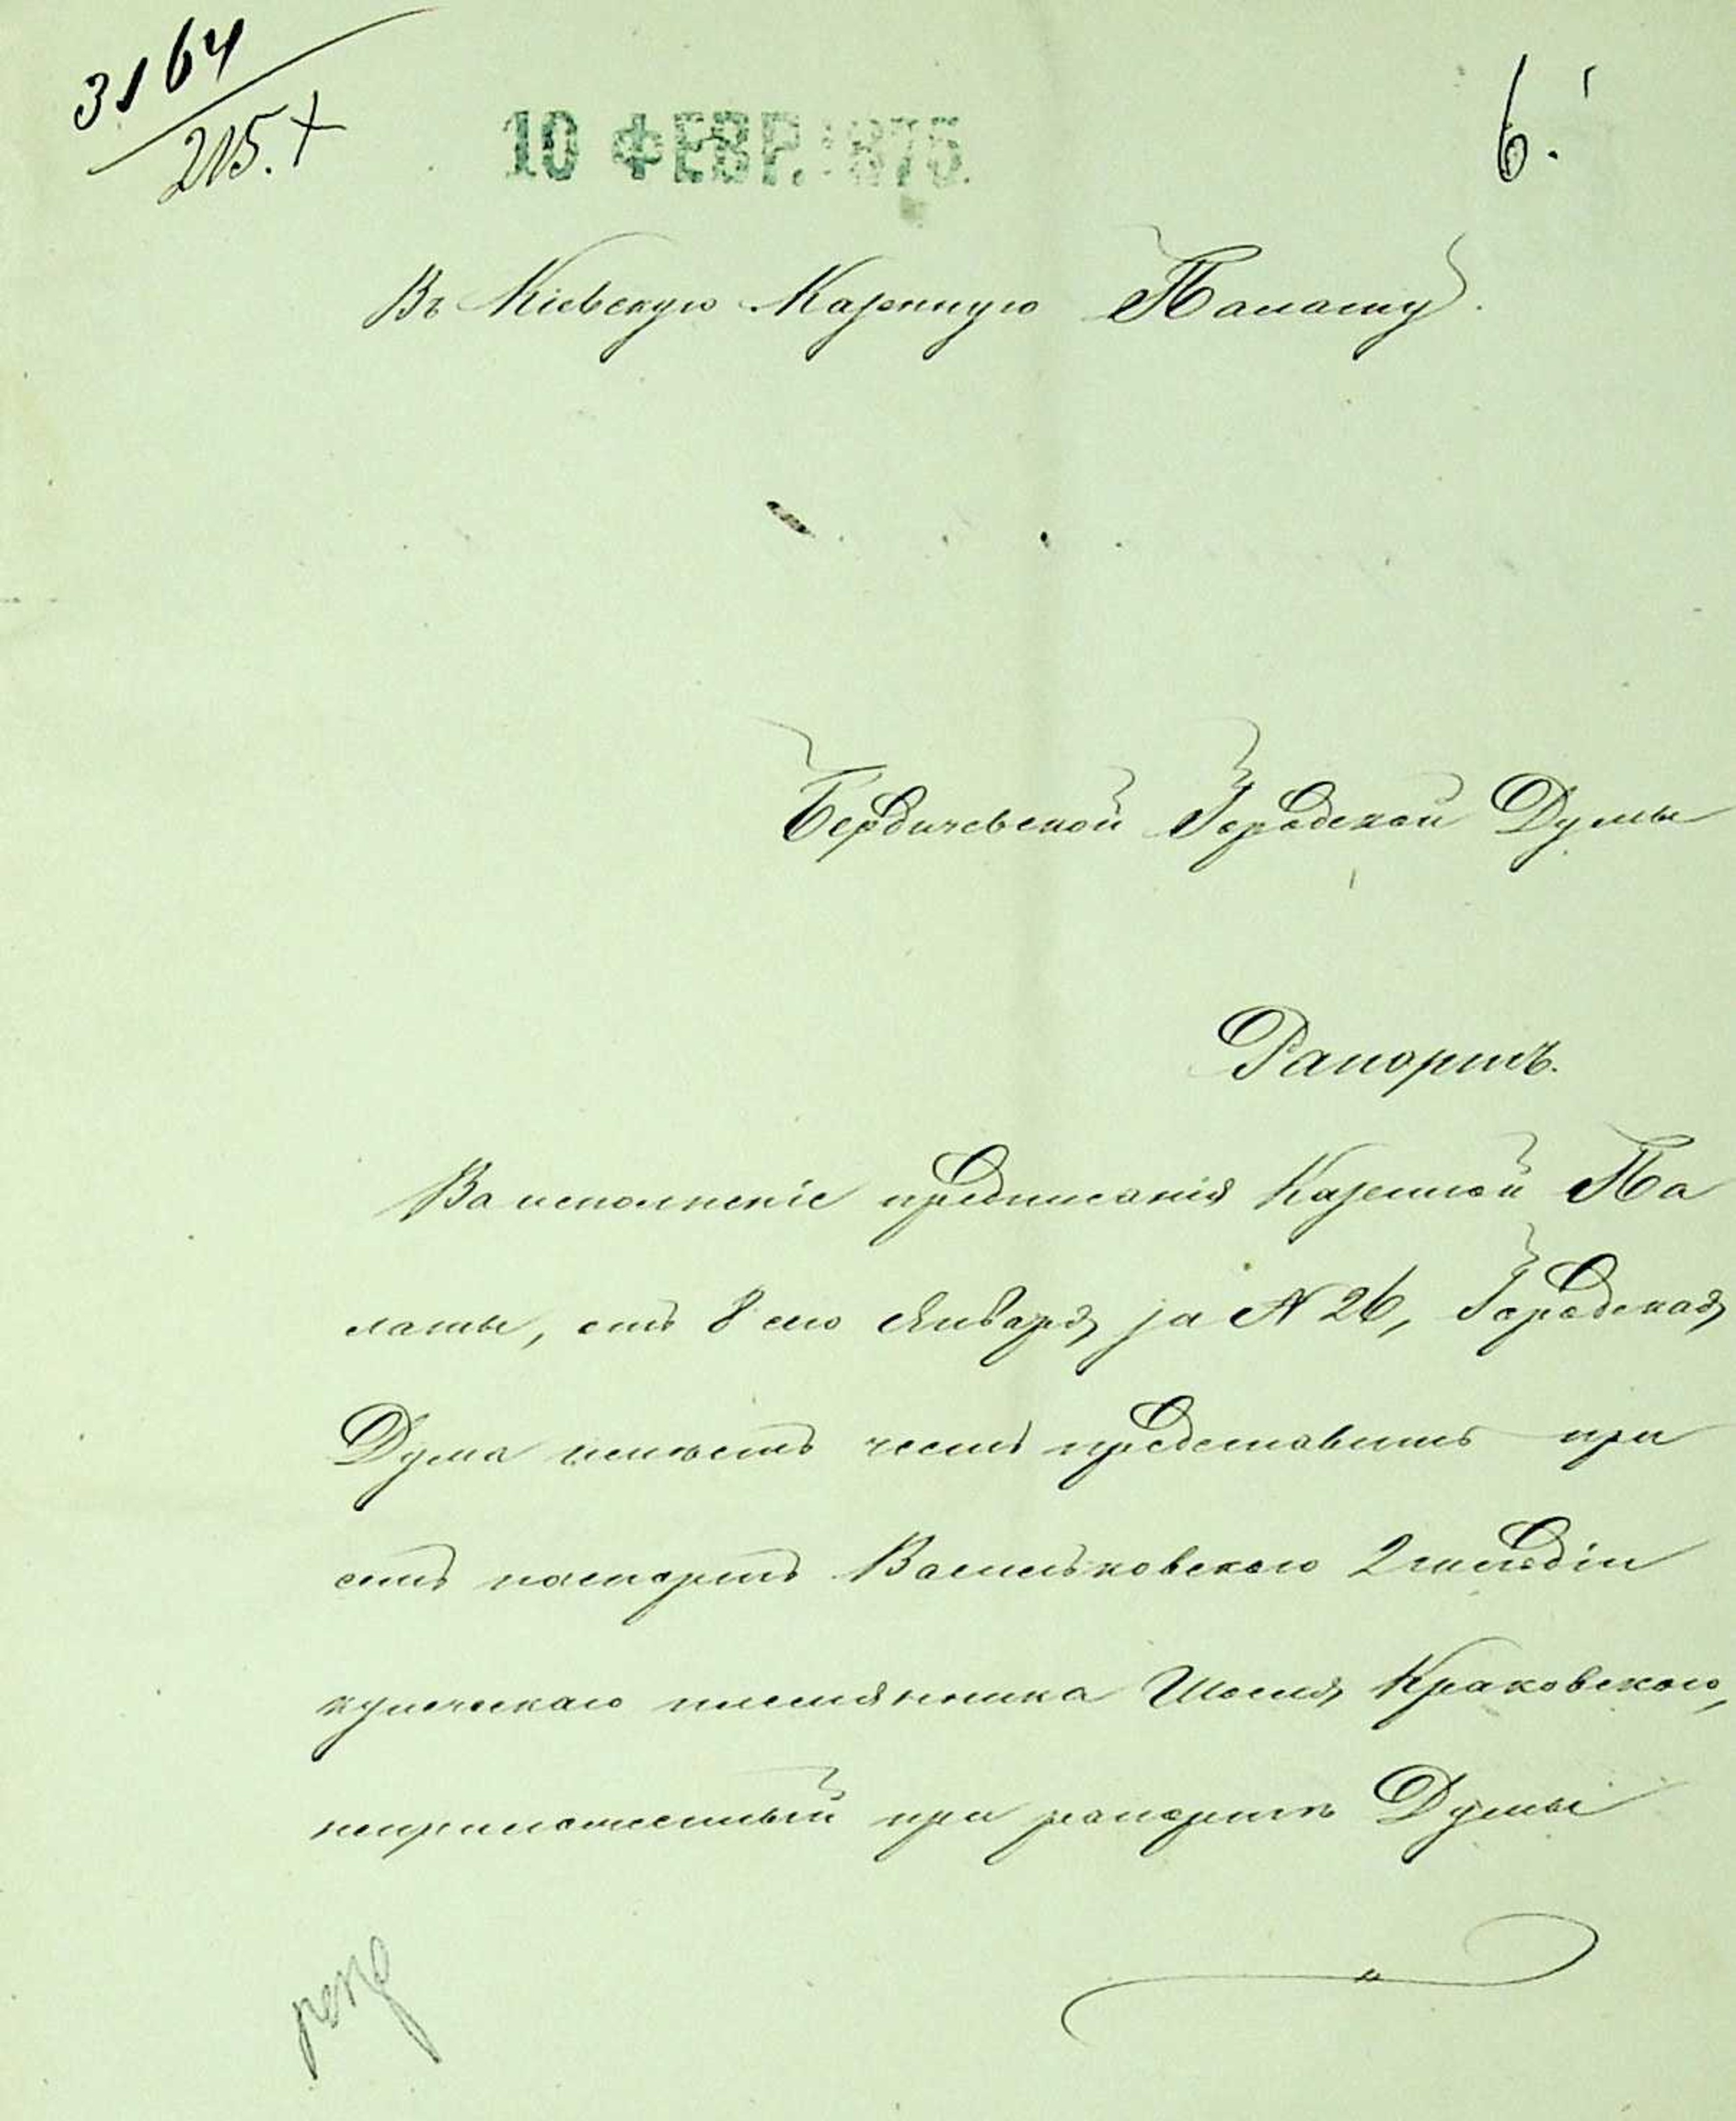 3164
215.
10 ФЕВР. 1875.
6.
Въ Кіевскую Казенную Палату.
Бердичевской Городской Думы
Рапортъ.
Во исполненіе предписанія Казенной Па
латы, отъ 8 сего Января за N 26, Городская
Дума имѣетъ честь представить при
семъ паспортъ Васильковского 2 гильдіи
купеческаго племянника Шоеля Краковского,
неприложенный при рапортѣ Думы